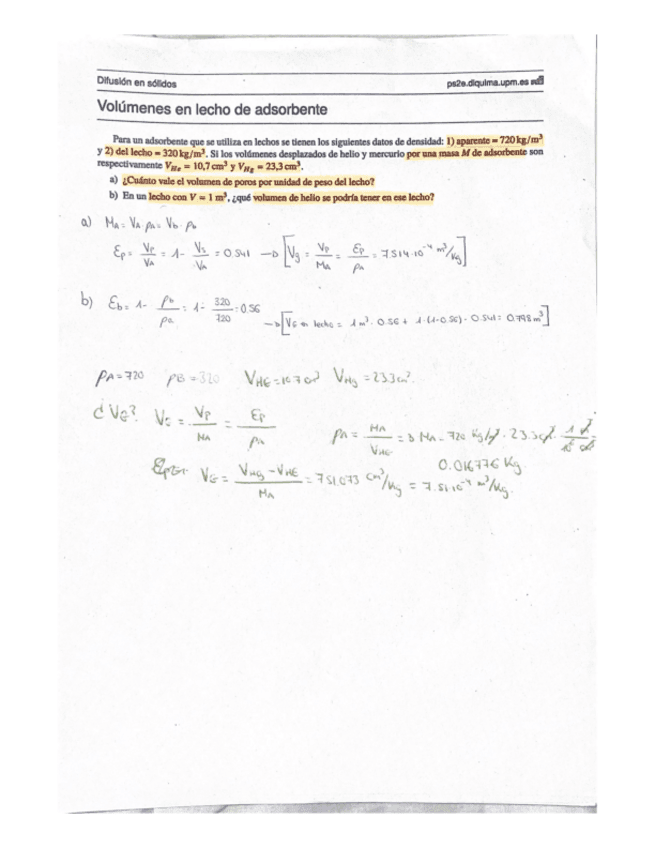 Difusión en sólidos
ps2e.diquima.upm.es
Volúmenes en lecho de adsorbente
Para un adsorbente que se utiliza en lechos se tienen los siguientes datos de densidad: 1) aparente = 720 kg/m³
y 2) del lecho = 320 kg/m³. Si los volúmenes desplazados de helio y mercurio por una masa M de adsorbente son
respectivamente V_He = 10,7 cm³ y V_Hg = 23,3 cm³.
a) ¿Cuánto vale el volumen de poros por unidad de peso del lecho?
b) En un lecho con V = 1 m³, ¿qué volumen de helio se podría tener en ese lecho?
a) M_A = V_A · ρ_A = V_b · ρ_b
Ep = Vp/V_A = 1 - Vs/V_A = 0.541 → [Vg = Vp/M_A = Ep/ρ_A = 7.514·10⁻⁴ m³/kg]
b) Eb = 1 - ρb/ρa = 1 - 320/720 = 0.56
→ [V_G en lecho = 1 m³ · 0.56 + 1·(1-0.56)·0.541 = 0.798 m³]
ρA = 720 ρB = 320 V_HE = 10.7 cm³ V_Hg = 23.3 cm³.
¿V_G? V_G = Vp/M_A = Ep/ρA ρA = M_A/V_HG → M_A = 720 kg/m³ · 23.3 cm³ · 1 m³/10⁶ cm³
0.016776 Kg
V_G = (V_Hg - V_HE)/M_A = 751.073 cm³/kg = 7.51·10⁻⁴ m³/kg.